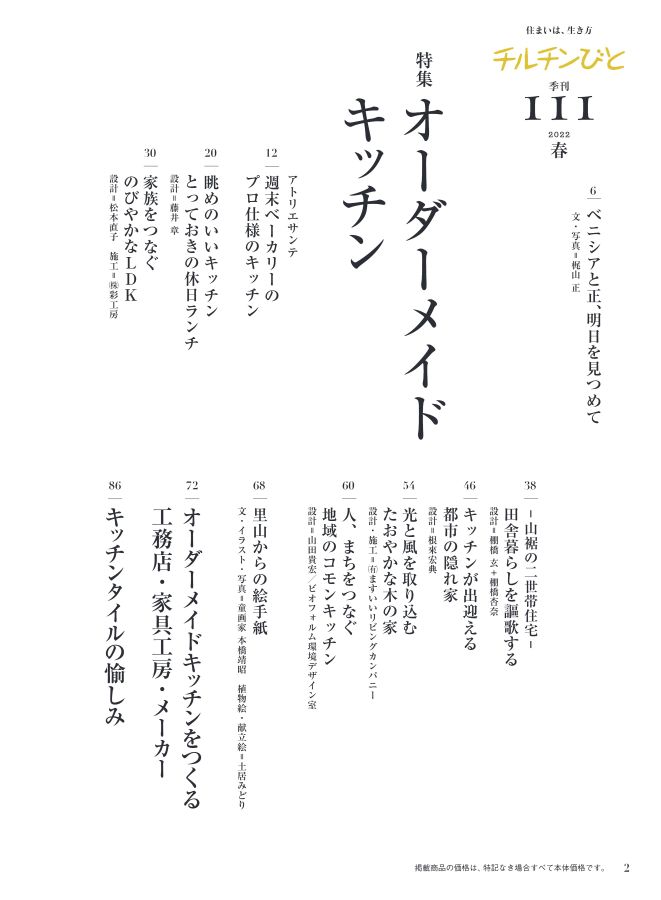 住まいは、生き方
チルチンびと
季刊
111
2022
春
6
ベニシアと正、明日を見つめて
文・写真＝梶山 正
特集
オーダーメイド
キッチン
12
アトリエサンテ
週末ベーカリーの
プロ仕様のキッチン
20
眺めのいいキッチン
とっておきの休日ランチ
設計＝藤井 章
30
家族をつなぐ
のびやかなLDK
設計＝松本直子 施工＝㈱彩工房
38
－山裾の二世帯住宅－
田舎暮らしを謳歌する
設計＝棚橋 玄＋棚橋杏奈
46
キッチンが出迎える
都市の隠れ家
設計＝根來宏典
54
光と風を取り込む
たおやかな木の家
設計・施工＝㈲ますいいリビングカンパニー
60
人、まちをつなぐ
地域のコモンキッチン
設計＝山田貴宏／ビオフォルム環境デザイン室
68
里山からの絵手紙
文・イラスト・写真＝童画家 本橋靖昭 植物絵・献立絵＝土居みどり
72
オーダーメイドキッチンをつくる
工務店・家具工房・メーカー
86
キッチンタイルの愉しみ
掲載商品の価格は、特記なき場合すべて本体価格です。 2